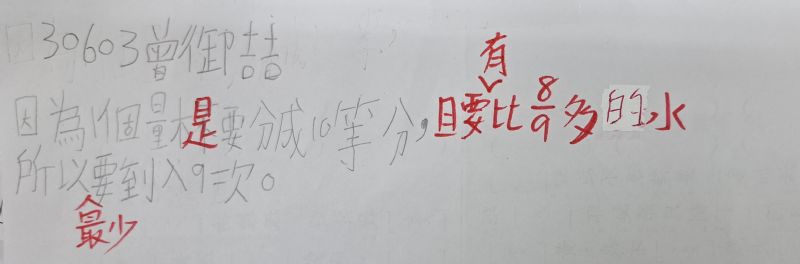 30603曾御喆
有
因為1個量杯是要分成10等分,且要比8/9多的水
所以要到入9次。
最少